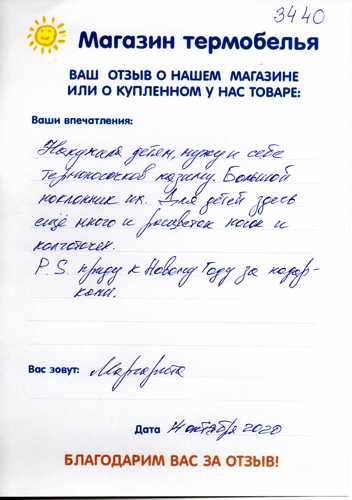 3440
Магазин термобелья
ВАШ ОТЗЫВ О НАШЕМ МАГАЗИНЕ
ИЛИ О КУПЛЕННОМ У НАС ТОВАРЕ:
Ваши впечатления:
детям, мужу и себе
термоносочков на зиму. Большой
поклонник их. Для детей здесь
ещё много и расцветок носок и
колготочек.
P.S. приду к Новому Году за подар-
ками.
Вас зовут: Маргарита
Дата 14 октября 2020
БЛАГОДАРИМ ВАС ЗА ОТЗЫВ!